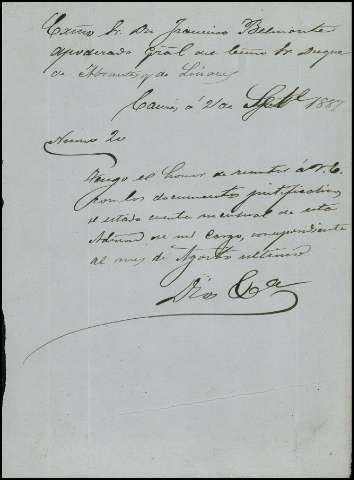 Excmo Sr. Dn Francisco Belmonte
apoderado gral del Excmo Sr. Duque
de Abrantes y de Linares
á 2 de Setbe 1887
Numo 20
Tengo el honor de remitir á V. E.
con los documentos justificativos
el estado cuenta mensual de esta
Admon de mi cargo, correspondiente
al mes de Agosto ultimo
Dios Ca